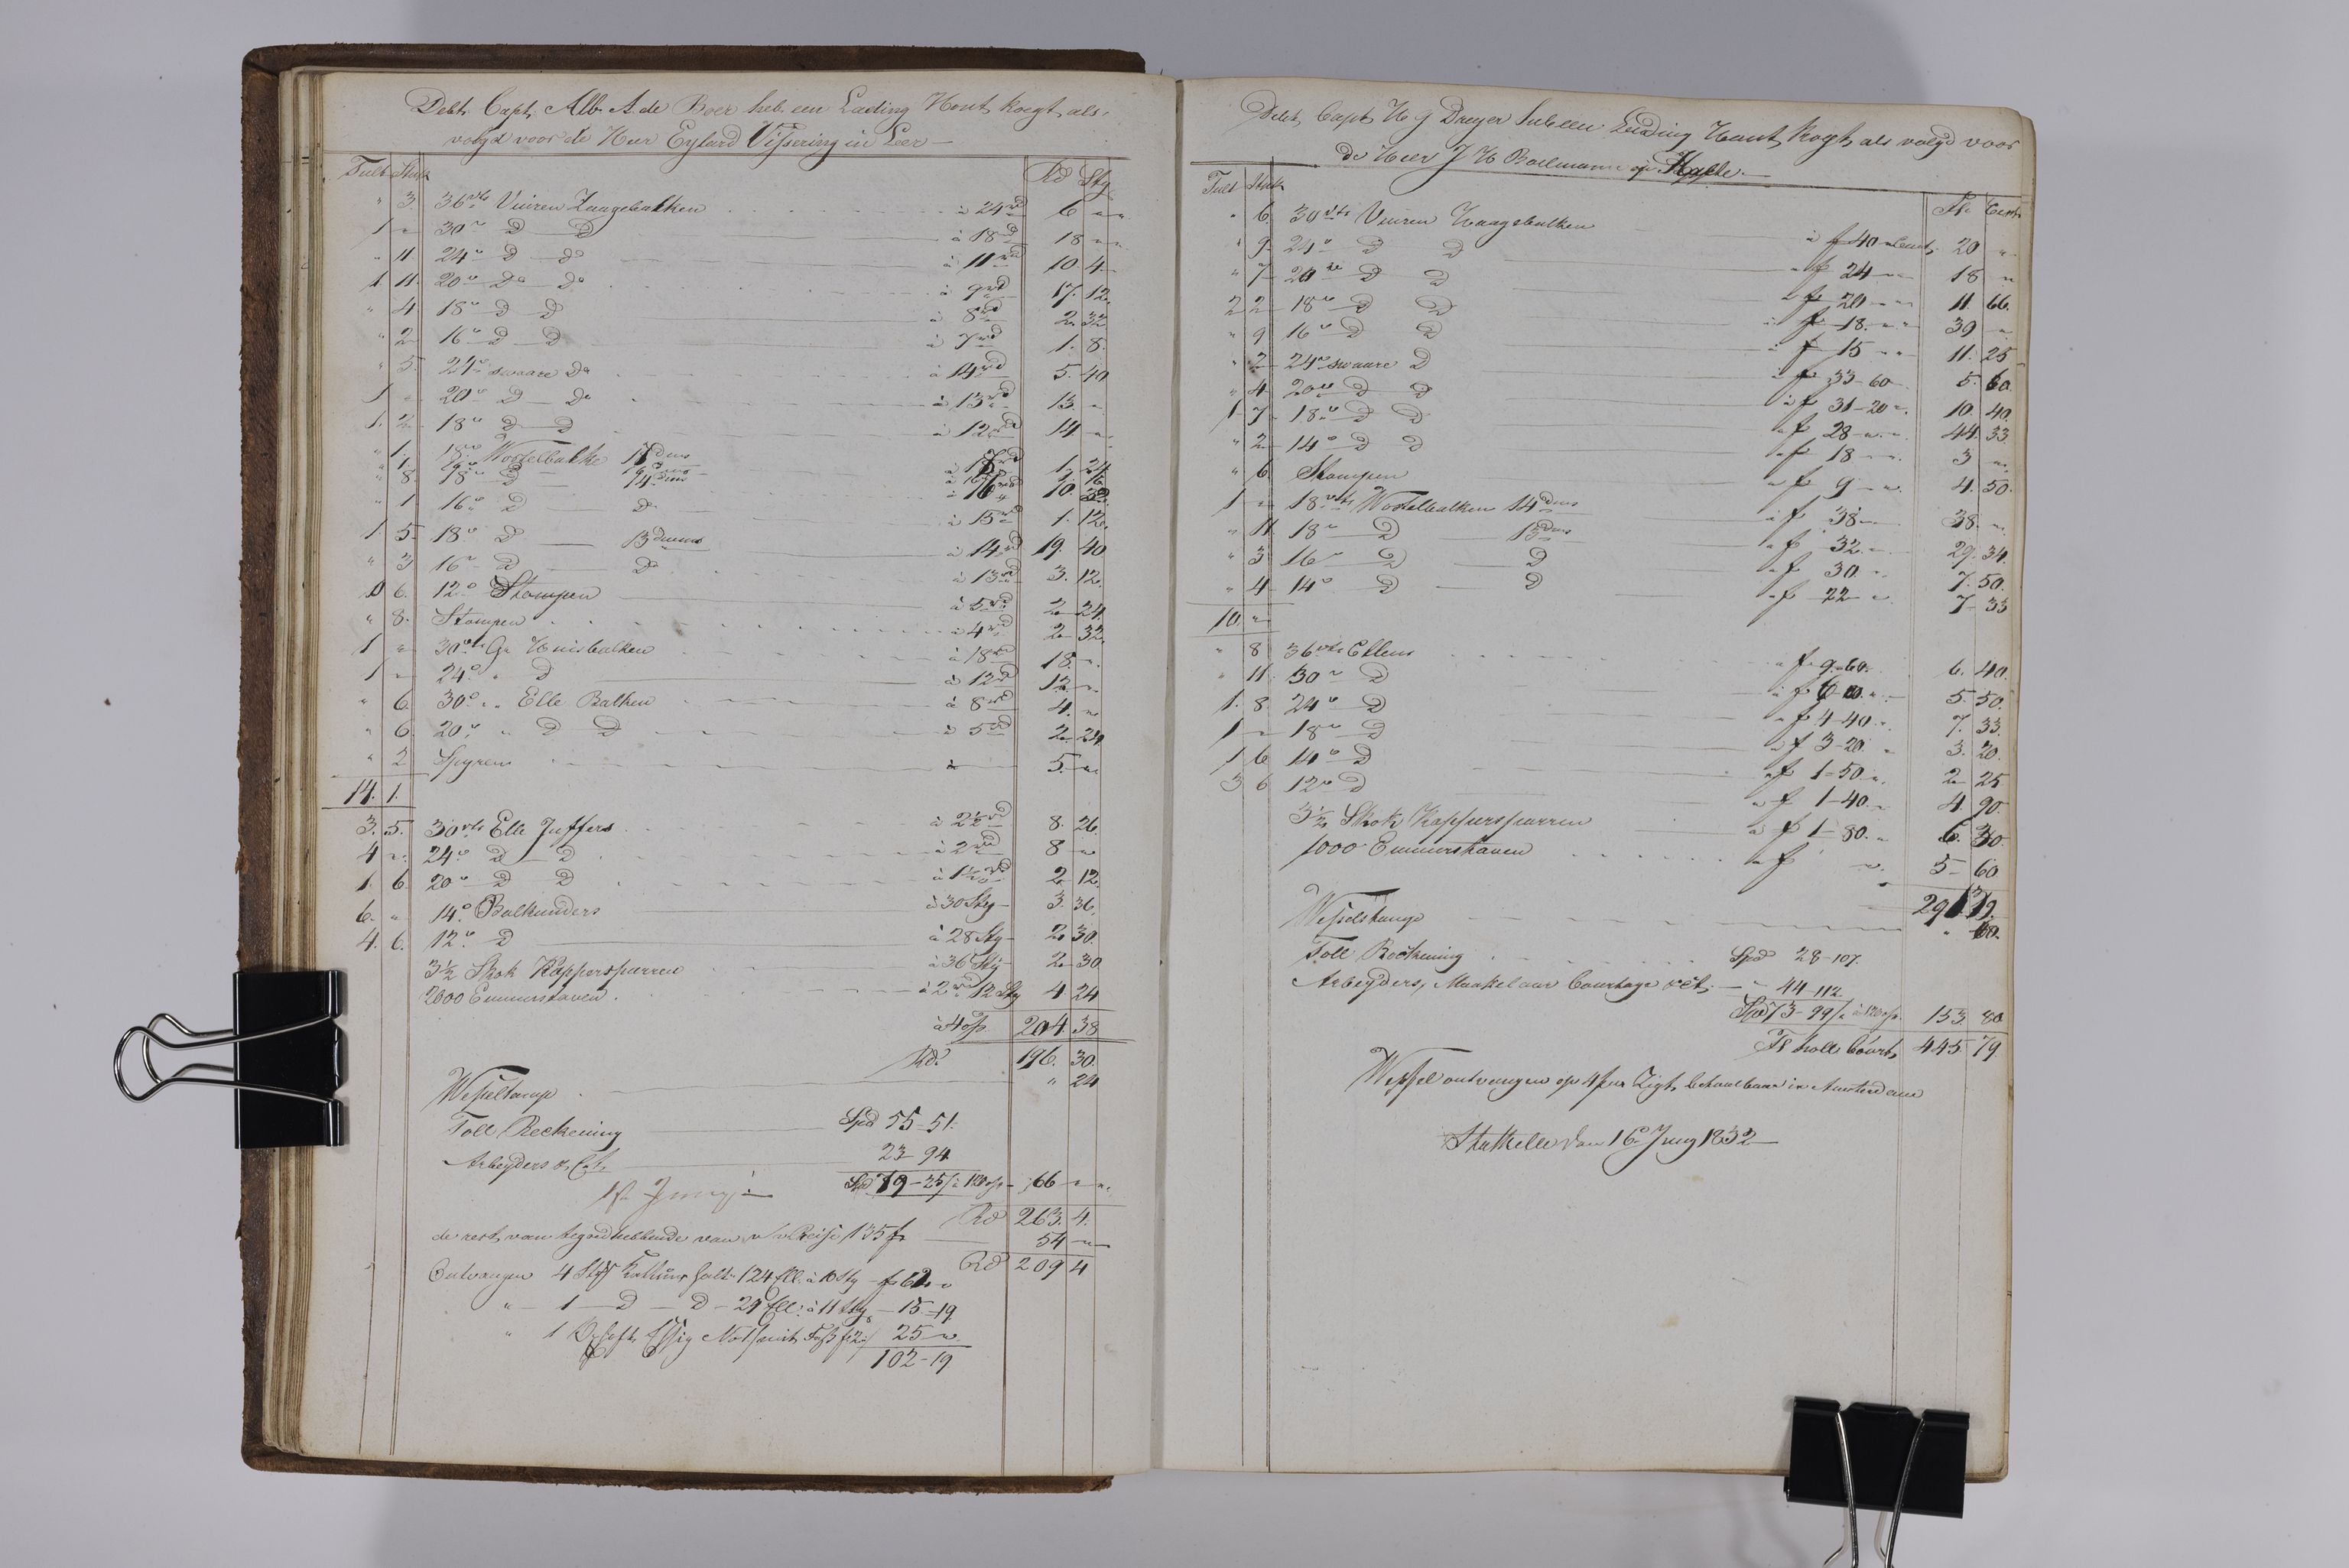 Debt. Capt. Alb. A. de Boer heb een Lading Hout kogt als
volgd voor de Heer Eylard Vissering in Leer
Tult Stuk Rd Stg
" 3. 36 vts Vuiren Zaagebalken à 24 rd 6 " "
1 " 30 " D D à 18 rd 18 " "
" 11 24 " D Do à 11 rd 10. 4
1 11. 20 " Do Do à 9 rd 17. 12.
" 4 18 " D D à 8 rd 2. 32
" 2 16 " D D à 7 rd 1. 8.
" 5. 24 " swaare Do à 14 rd 5. 40
1 " 20 " D Do à 13 rd 13. "
1. 2 18 " D D à 12 rd 14. "
" 1. 18 " Wostelbalke 1. 24
" 8. 18 " D 14 dms à 16 rd 10. 32.
" 1 16 " D Do à 15 rd 1. 12.
1. 5 18 " D 13 duims à 14 rd 19. 40
" 3 16 " D Do à 13 rd 3. 12.
6. 12 " Stompen à 5 rd 2. 24.
" 8. Stompen à 4 rd 2. 32.
1 " 30 vts Gr Huisbalken à 18 rd 18. "
1 " 24 " " D à 12 rd 12. "
" 6. 30 " " Elle Balken à 8 rd 4. "
" 6. 20 " " D D à 5 rd 2. 24
" 2 Spyren à 5. "
14. 1.
3. 5. 30 vts Elle Juffers à 2½ rd 8. 26.
4 " 24 " D D à 2 rd 8 "
1. 6. 20 " D D à 1½ rd 2. 12.
6. " 14 " Balkunders à 30 Stg 3. 36.
4. 6. 12 " D à 28 Stg 2. 30.
3½ Skok Kappersparren à 36 Stg 2. 30
2000 Emmerstaven à 2 rd 12 Stg 4. 24
à 4 of 204. 38
Rd. 196. 30.
Wesseltamp " 24
Toll Reckening Spd 55-51.
Arbeyders &. Ct. 23-94
Spd 79-25/ à 100 of 66 " "
Rd 263. 4.
de rest van tegoedhebbende van v/v Reise 135 f 54 "
Rd 209 4
Ontvangen 4 Stk Kattung halt. 124 Ell. à 10 Stg f 62. "
" 1 D D 29 Ell: à 11 Stg 15-19.
" 1 Oxhoft Essig No 1 25 ".
102-19
Debt. Capt. H G Dreyer heb een Lading Hout kogt, als volgd voor
de Heer J H Boelmann op Halte.
Tult Stuk Fl. Cent
" 6. 30 vts Vuiren Zaagebalken à f 40 " Cent 20 "
" 9 24 " D D " f 24 " 18 "
" 7 20 " D D " f 20 " 11. 66.
2 2 18 " D D à f 18. " 39 "
" 9 16 " D D à f 15 " 11. 25
" 2 24 " swaare D à f 33-60 5. 60.
" 4 20 " D D à f 31-20 10. 40.
1 7 18 " D D " f 28 " 44. 33.
" 2 14 " D D " f 18 " 3 "
" 6 Stompen " f 9 " 4. 50.
1 " 18 vts Wostelbalken 14 dms à f 38 38. "
" 11 18 " D 13 dms " f 32. " 29. 34.
" 3 16 " D D " f 30. " 7. 50.
" 4 14 " D D " f 22 " 7. 33
10. "
" 8 36 vts Ellens " f 9-60. 6. 40.
" 11. 30 " D 5. 50.
1. 8 24 " D " f 4-40. 7. 33.
1 " 18 " D " f 3-20. 3. 20.
1 6 14 " D " f 1-50. 2. 25.
3 6 12 " D " f 1-40. 4. 90.
3½ Skok Kappersparren à f 1-80. 6. 30.
1000 Emmerstaven " f 5. 60
Wesselstamp " 60.
Toll Reckening Spd 28-107.
Arbeyders, Maakelaar Courtage & ct. " 44-112
Spd 73-99/ à 120 of. 153. 80
Fl holl Court 445. 79
Wessel ontvangen op 4 Zigt, betaalbaar in Amsterdam
Stathelle den 16 Juny 1832